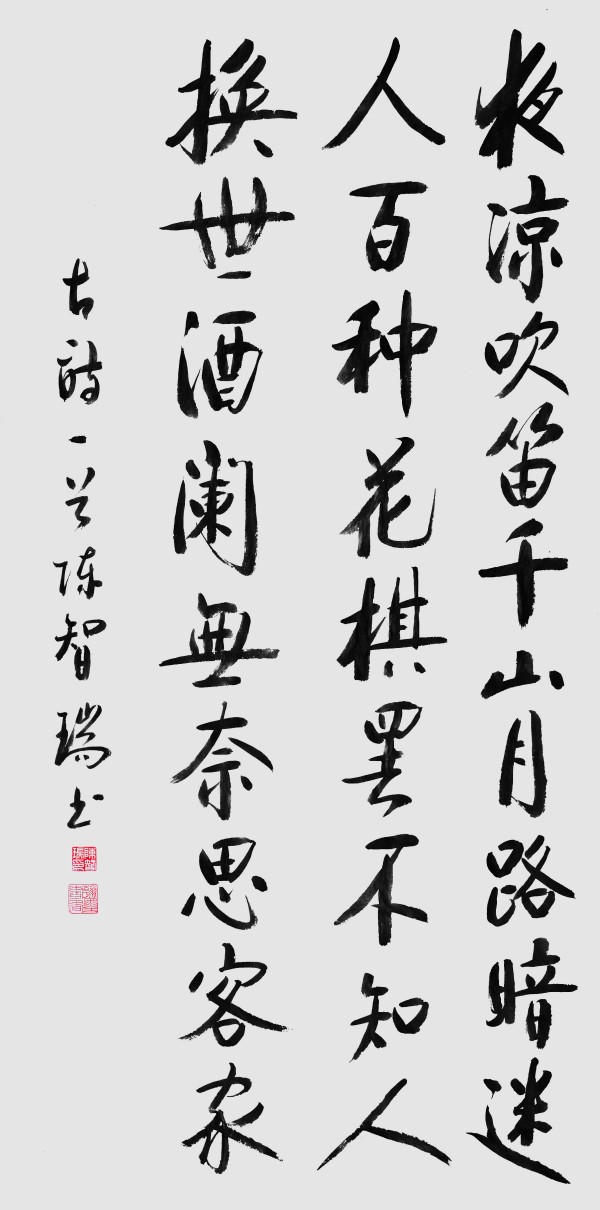 夜涼吹笛千山月路暗迷
人百种花棋罢不知人
换世酒阑無奈思客家
古诗一首陈智瑞书